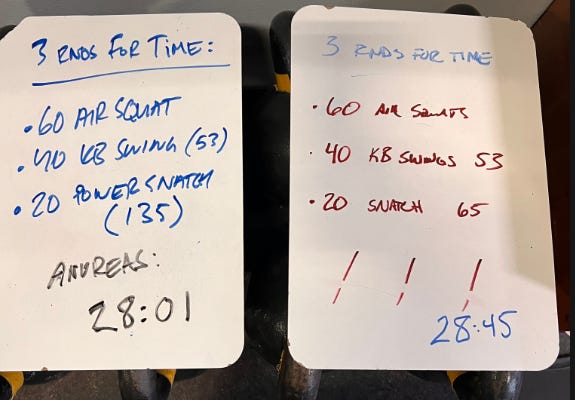 3 RNDS FOR TIME:
• 60 AIR SQUAT
• 40 KB SWING (53)
• 20 POWER SNATCH
(135)
ANDREAS:
28:01
3 RNDS FOR TIME
• 60 AIR SQUATS
• 40 KB SWINGS 53
• 20 SNATCH 65
28:45